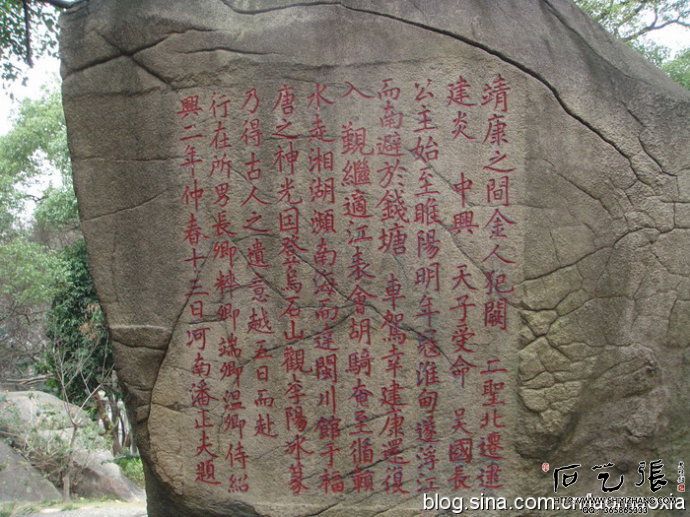 靖康之間金人犯闕 二聖北遷逮
建炎 中興 天子受命 吴國長
公主始至睢陽明年寇淮甸遂浮江
而南避於錢塘 車駕幸建康還復
入 覲繼適江表會胡騎奄至循贛
水走湘湖瀕南海而達閩川館于福
唐之神光因登烏石山觀李陽冰篆
乃得古人之遺意越五日而赴
行在所男長卿粹卿端卿温卿侍紹
興二年仲春十三日河南潘正夫題
石艺張